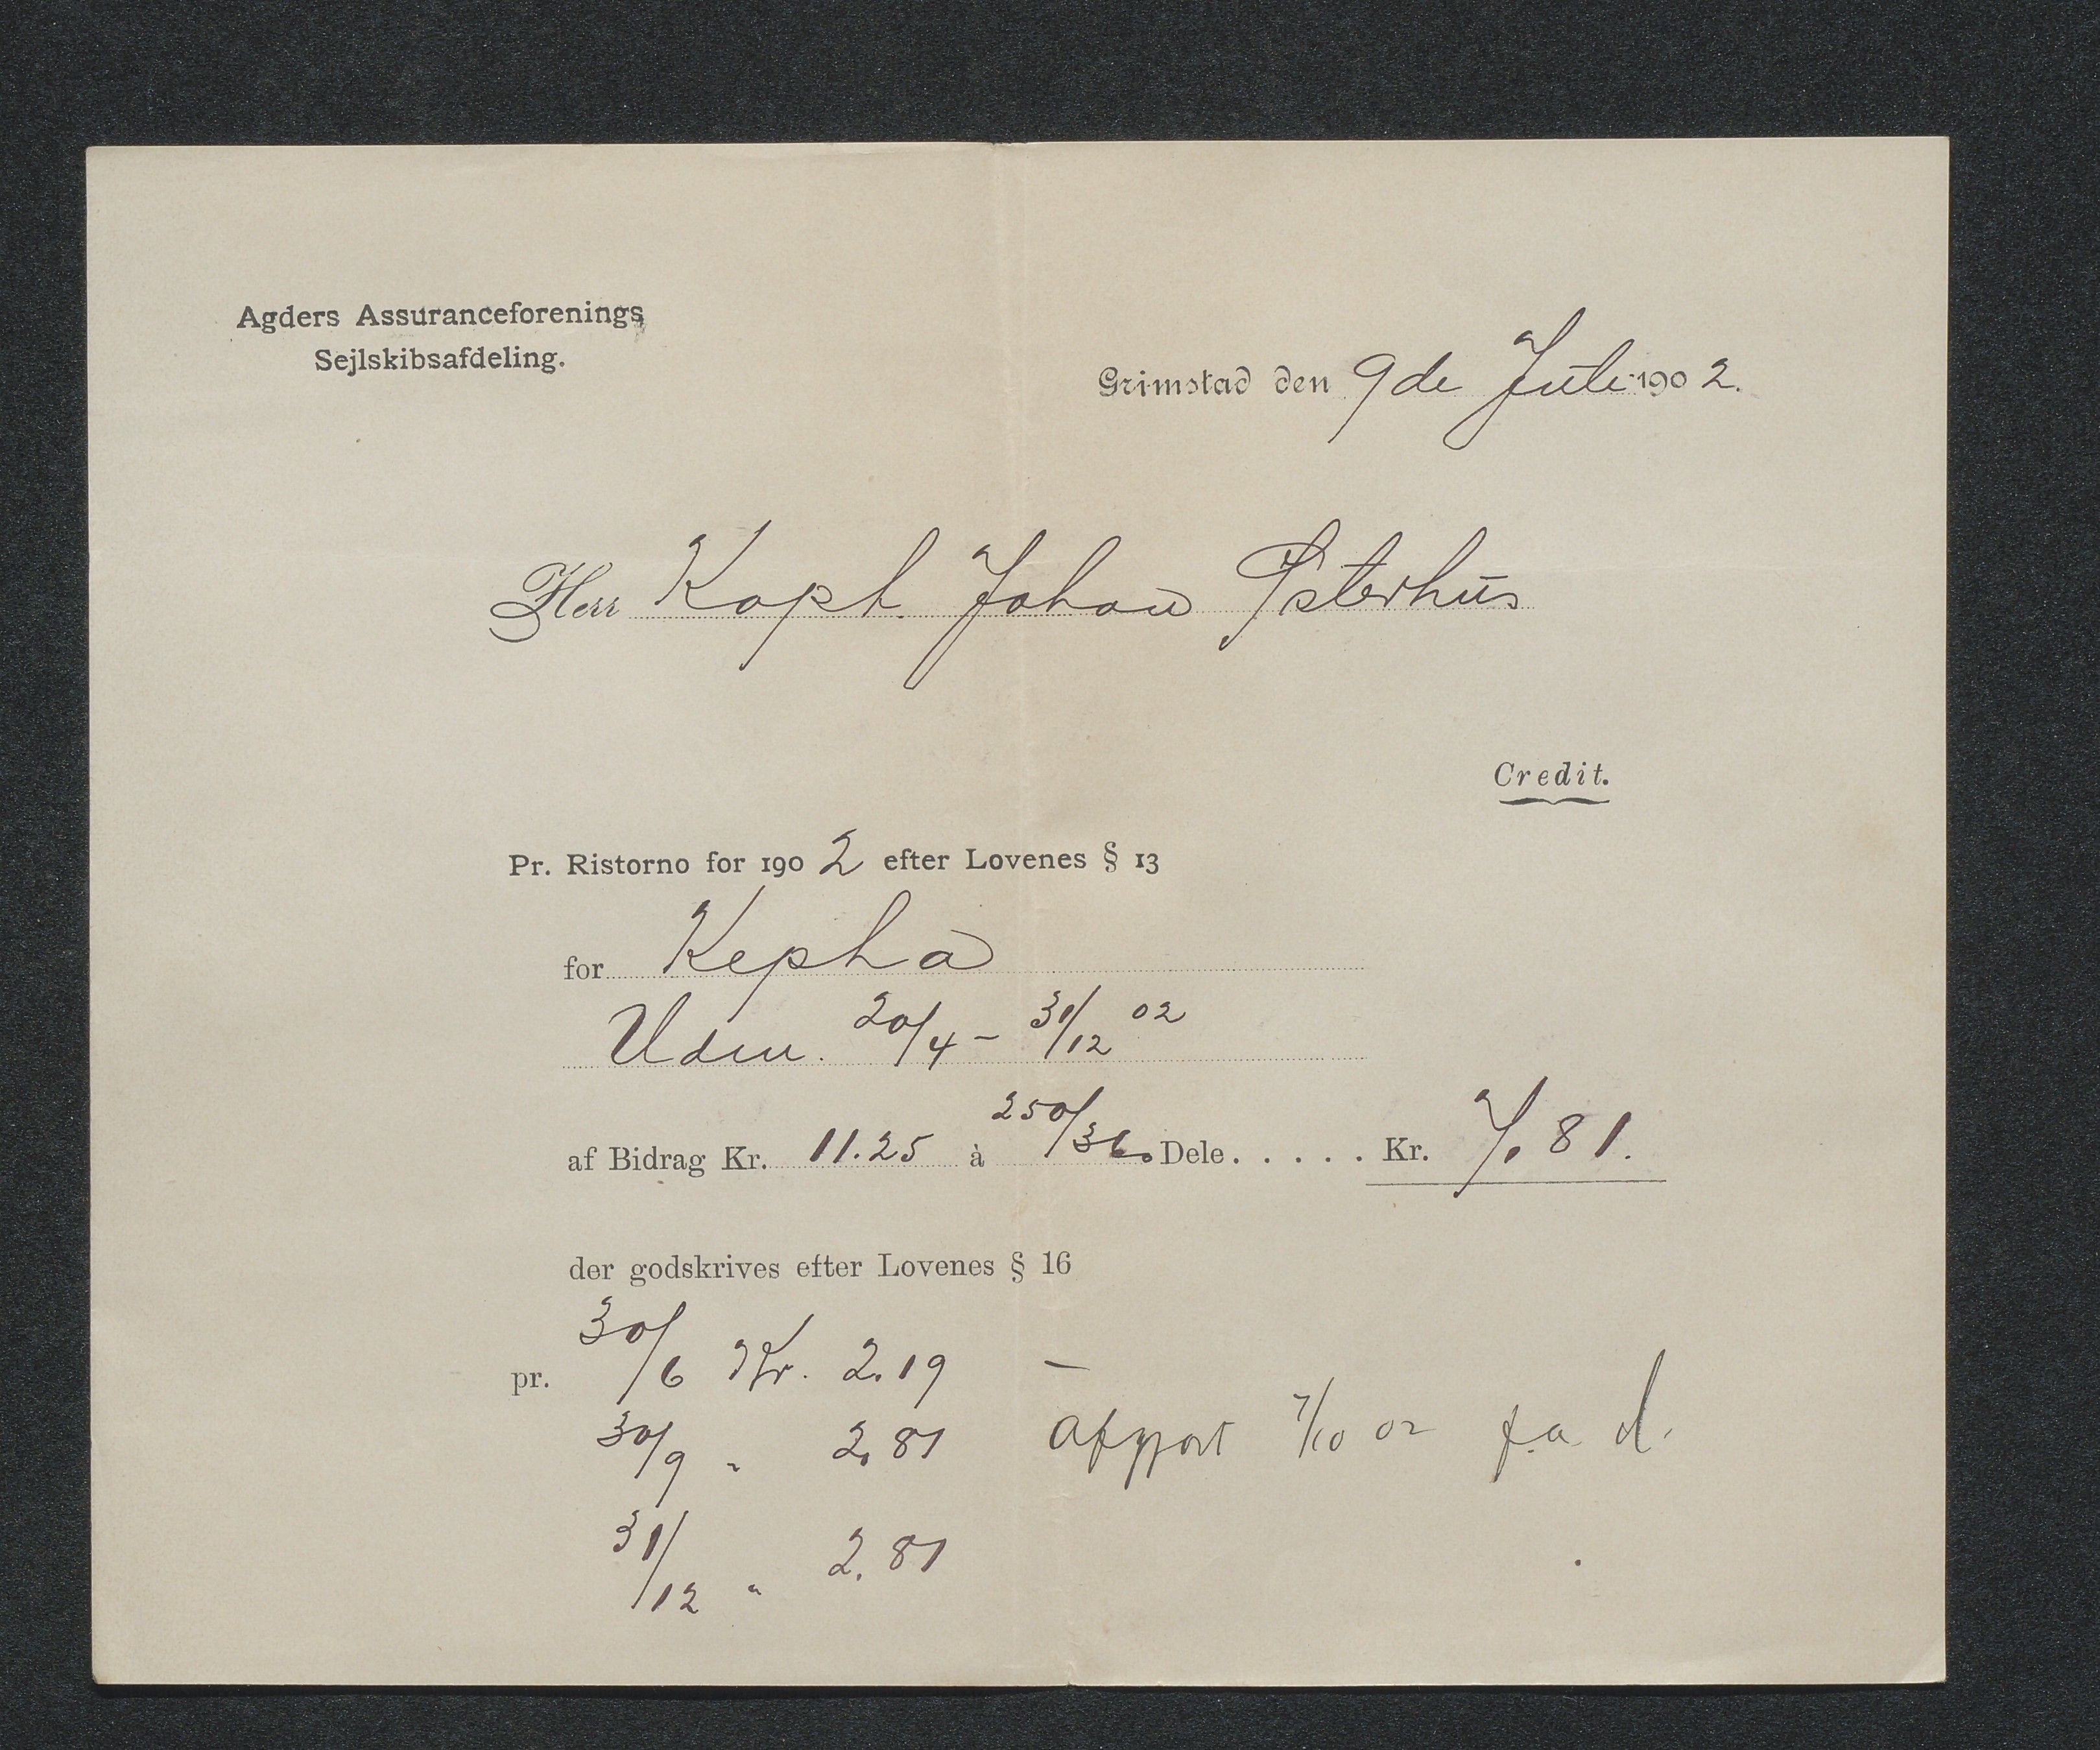 Agders Assuranceforenings
Sejlskibsafdeling.
Grimstad den 9de Juli 1902.
Herr Kapt. Johan Østerhus
Credit.
Pr. Ristorno for 1902 efter Lovenes § 13
for Kepha
Udm. 20/4 - 31/12 02
af Bidrag Kr. 11.25 à 250/360 Dele..... Kr. 7.81.
der godskrives efter Lovenes § 16
pr. 30/6 Kr. 2.19 -
30/9 " 2.81 afgjort 7/10 02 f.a. d.
31/12 " 2.81